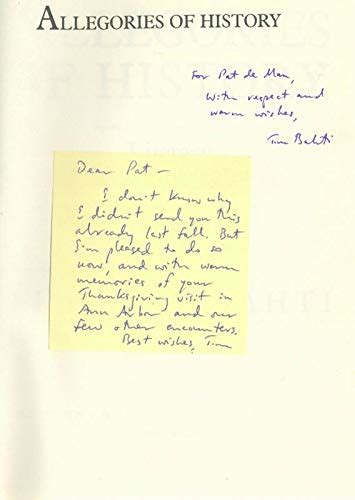 ALLEGORIES OF HISTORY
For Pat de Man,
With respect and
warm wishes,
Tim Bahti
Dear Pat –
I don't know why
I didn't send you this
already last fall. But
I'm pleased to do so
now, and with warm
memories of your
Thanksgiving visit in
Ann Arbor and our
few other encounters.
Best wishes, Tim
AHTI